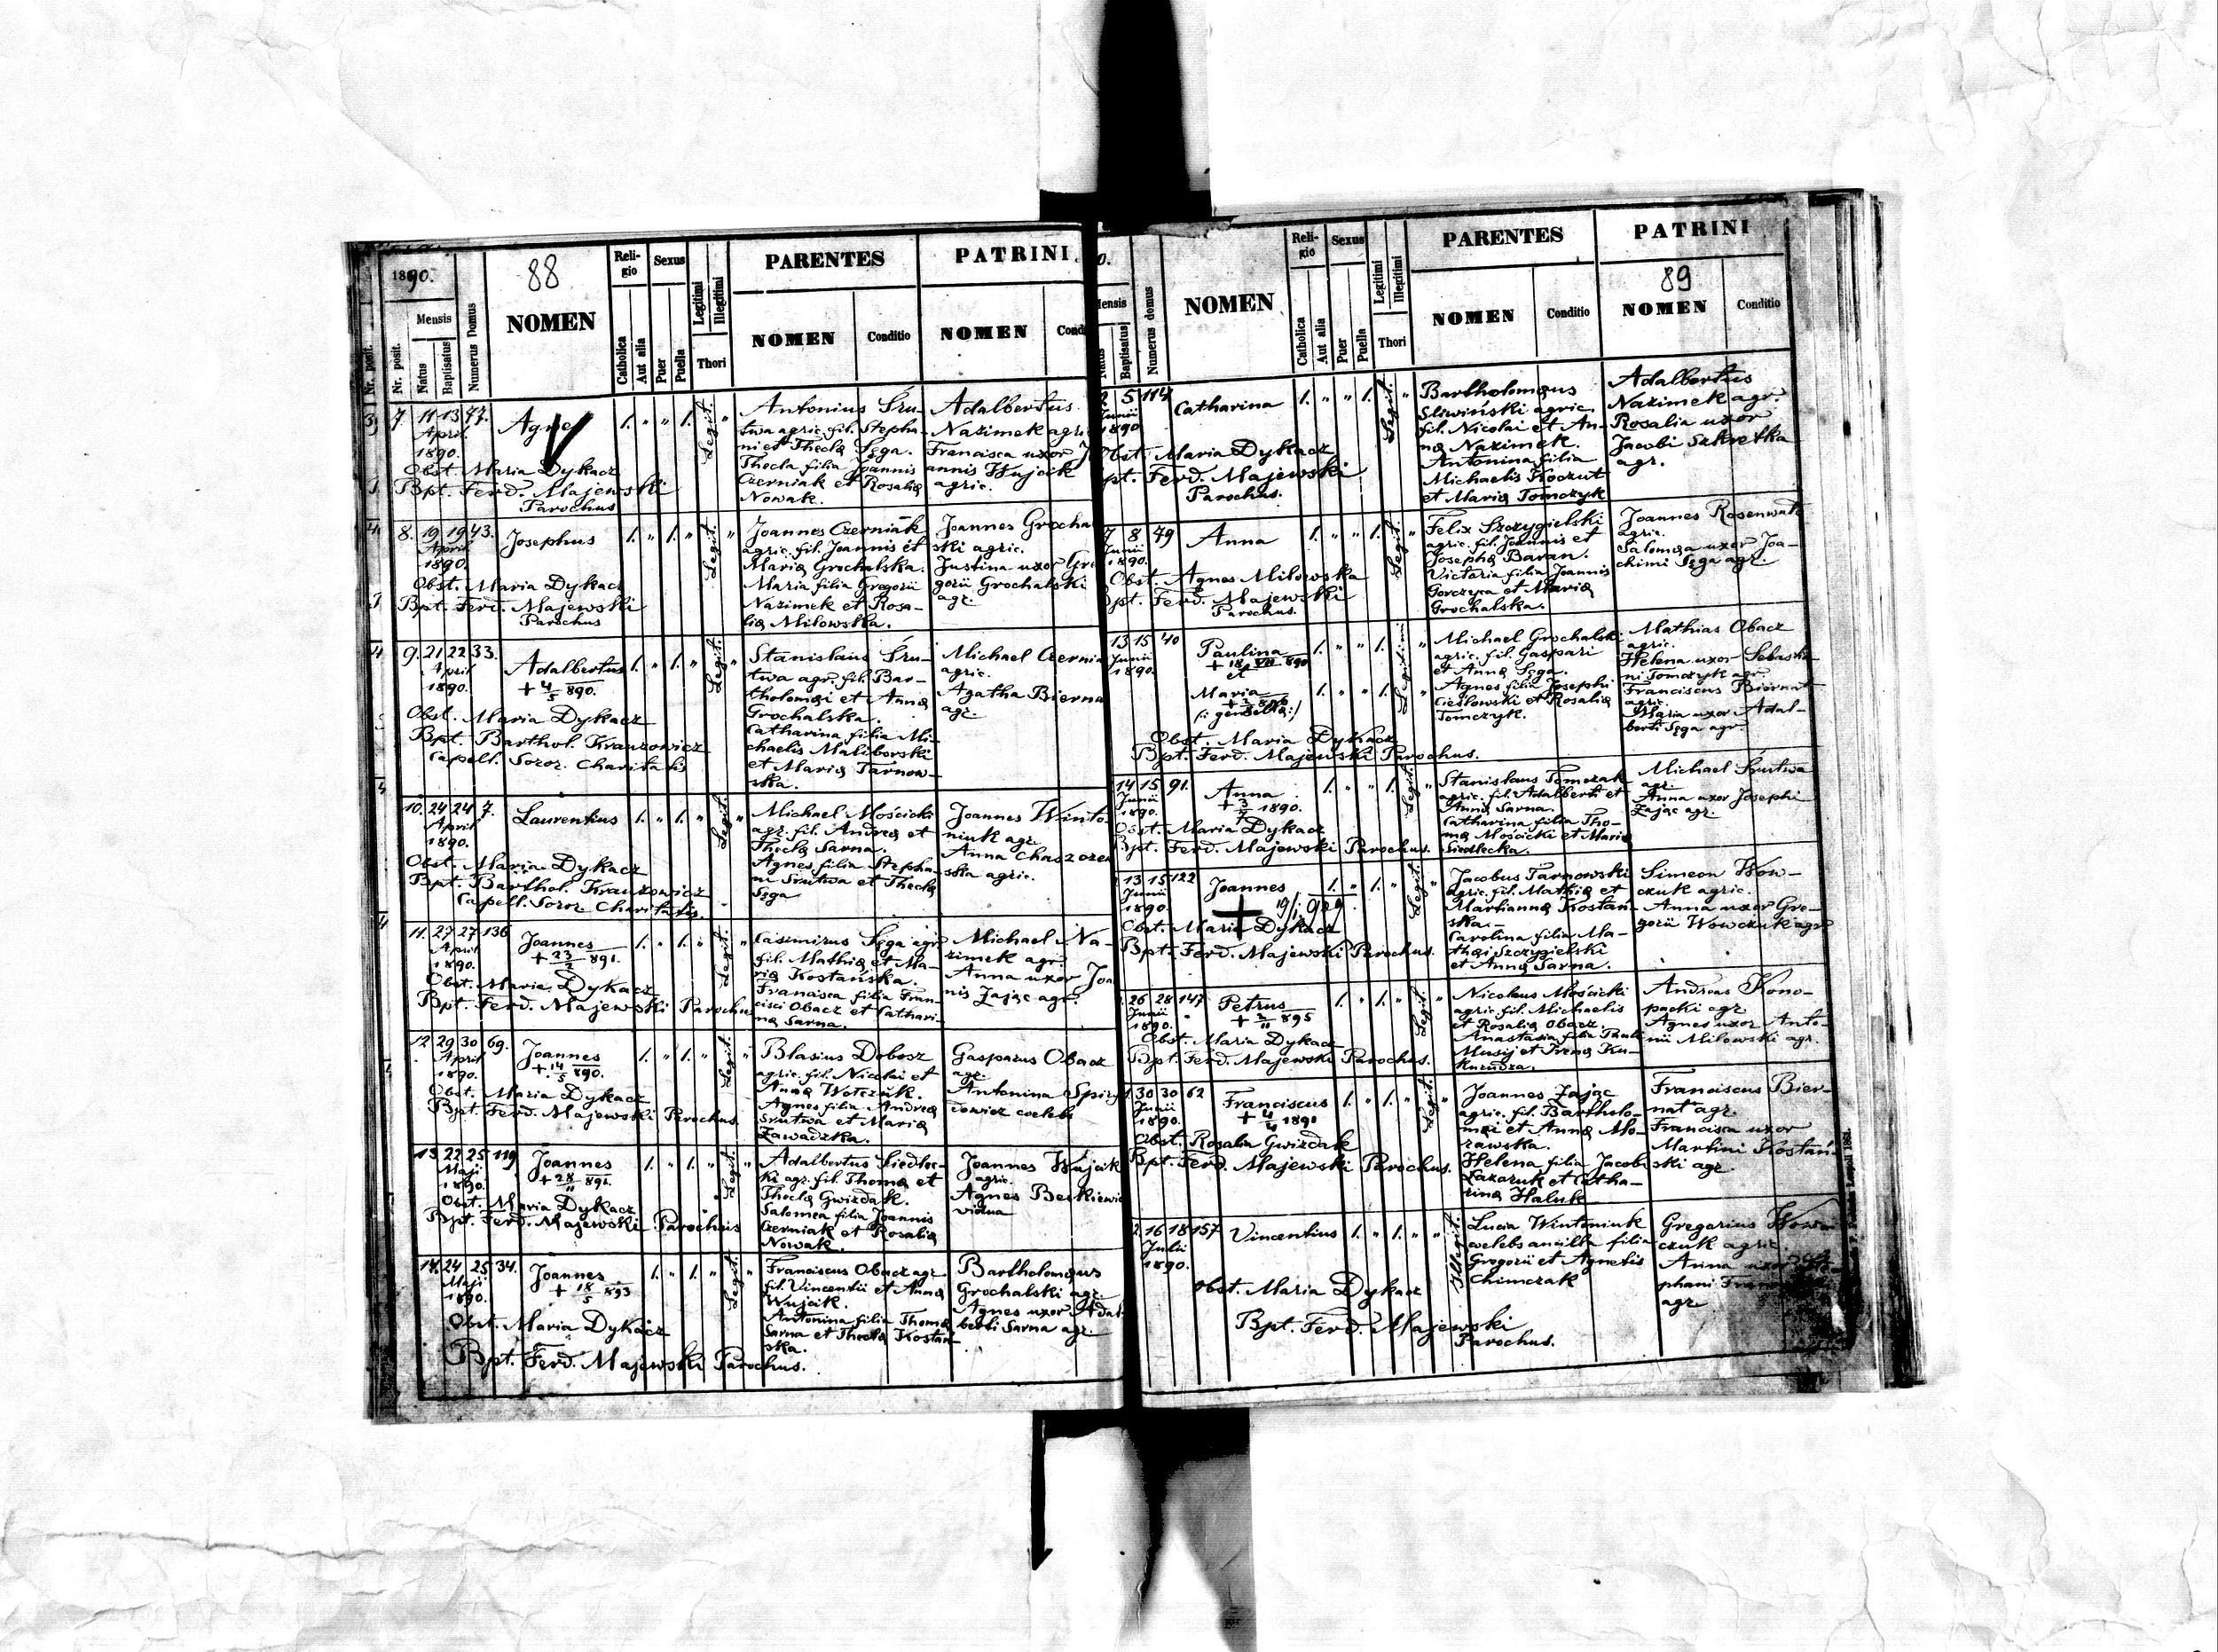 1890.
88
Mensis
Nr. posit.
Nr. posit.
Natus
Baptisatus
Numerus Domus
NOMEN
Reli-
gio
Catholica
Aut alia
Sexus
Puer
Puella
Legitimi
Illegitimi
Thori
PARENTES
NOMEN
Conditio
PATRINI
NOMEN
7. 11 13 47.
April
1890.
Obst. Maria Dykacz
Bpt. Ferd. Majewski
Parochus
1. " " 1. Legit. "
Antonius Sru-
twa agric. fil. Stepha-
ni et Theclæ Sęga.
Thecla filia Joannis
Czerniak et Rosaliæ
Nowak.
Adalbertus
Nazimek
Francisca uxor
annis Wujcik
agric.
8. 19 19 43.
April
1890.
Josephus
Obst. Maria Dykacz
Bpt. Ferd. Majewski
Parochus
1. " 1. " Legit. "
Joannes Czerniak
agric. fil. Joannis et
Mariæ Grochalska.
Maria filia Gregorii
Nazimek et Rosa-
liæ Milowska.
Joannes Grocha
ski agric.
Justina uxor
gorii Grochalski
agr.
9. 21 22 33.
April
1890.
Adalbertus
+ 4/5 890.
Obst. Maria Dykacz
Bpt. Barthol. Kranzowicz
Capell. Soror. Charitatis
1. " 1. " Legit. "
Stanislaus Sru-
twa agr. fil. Bar-
tholomæi et Annæ
Grochalska.
Catharina filia Mi-
chaelis Maliborski
et Mariæ Tarnow-
ska.
Michael Czernia
agric.
Agatha Bierna
agr.
10. 24 24 7.
April
1890.
Laurentius
Obst. Maria Dykacz
Bpt. Barthol. Kranzowicz
Capell. Soror. Charitatis.
1. " 1. " Legit. "
Michael Mościcki
agr. fil. Andreæ et
Theclæ Sarna.
Agnes filia Stepha-
ni Srutwa et Theclæ
Sęga
Joannes Winto
niuk agr.
Anna
ska agric.
11. 27 27 136
April
1890.
Joannes
+ 23/2 891.
Obst. Maria Dykacz
Bpt. Ferd. Majewski Parochus
1. " 1. " Legit. "
Casimirus Sęga agr.
fil. Mathiæ et Ma-
riæ Kostańska.
Francisca filia Fran-
cisci Obacz et Cathari-
næ Sarna.
Michael Na-
zimek agr.
Anna uxor Joa
nis Zając agr.
12. 29 30 69.
April
1890.
Joannes
+ 14/5 890.
Obst. Maria Dykacz
Bpt. Ferd. Majewski Parochus.
1. " 1. " Legit. "
Blasius Dobosz
agric. fil. Nicolai et
Annæ Wołczuk.
Agnes filia Andreæ
Srutwa et Mariæ
Zawadzka.
Gasparus Obacz
agr.
Antonina
dowicz coelebs
13. 22 25 119
Maji
1890.
Joannes
+ 28/11 891.
Obst. Maria Dykacz
Bpt. Ferd. Majewski Parochus
1. " 1. " Legit. "
Adalbertus Siedlec-
ki agr. fil. Thomæ et
Theclæ Gwizdak.
Salomea filia Joannis
Czerniak et Rosaliæ
Nowak.
Joannes Wujcik
agric.
Agnes
vidua
14. 24 25 34.
Maji
1890.
Joannes
+ 18/5 893
Obst. Maria Dykacz
Bpt. Ferd. Majewski Parochus.
1. " 1. " Legit. "
Franciscus Obacz agr.
fil. Vincentii et Annæ
Wujcik.
Antonina filia Thomæ
Sarna et Theclæ Kostań-
ska.
Bartholomæus
Grochalski agr.
Agnes uxor Adal-
berti Sarna agr.
Mensis
Natus
Baptisatus
Numerus domus
NOMEN
Reli-
gio
Catholica
Aut alia
Sexus
Puer
Puella
Legitimi
Illegitimi
Thori
PARENTES
NOMEN
Conditio
PATRINI
89
NOMEN
Conditio
5 114
Junii
1890
Catharina
Obst. Maria Dykacz
Bpt. Ferd. Majewski
Parochus.
1. " " 1. Legit. "
Bartholomæus
Sliwiński agric.
fil. Nicolai et An-
næ Nazimek.
Antonina filia
Michaelis Koczut
et Mariæ Tomczyk
Adalbertus
Nazimek agr.
Rosalia uxor
Jacobi Szkretka
agr.
7 8 49
Junii
1890.
Anna
Obst. Agnes Milowska
Bpt. Ferd. Majewski
Parochus.
1. " " 1. Legit. "
Felix Szczygielski
agric. fil. Joannis et
Josephæ Baran.
Victoria filia Joannis
Gorczyca et Mariæ
Grochalska.
Joannes Rosenwald
agric.
Salomea uxor Joa-
chimi Sęga agr.
13 15 40
Junii
1890.
Paulina
+ 18/VII 890
et
Maria
(: gemellæ :)
Obst. Maria Dykacz
Bpt. Ferd. Majewski Parochus.
Michael Grochalski
agric. fil. Gaspari
et Annæ Sęga.
Agnes filia Josephi
Cieślowski et Rosaliæ
Tomczyk.
Mathias Obacz
agric.
Helena uxor Sebastia-
ni Tomczyk agr.
Franciscus Biernat
agric.
Maria uxor Adal-
berti Sęga agr.
14 15 91.
Junii
1890.
Anna
+ 3/7 1890.
Obst. Maria Dykacz
Bpt. Ferd. Majewski Parochus.
Stanislaus Tomczak
agric. fil. Adalberti et
Annæ Sarna.
Catharina filia Tho-
mæ Mościcki et Mariæ
Siedlecka.
Michael Srutwa
agr.
Anna uxor Josephi
Zając agr.
13 15 122
Junii
1890.
Joannes
+ 19/i 929
Obst. Maria Dykacz
Bpt. Ferd. Majewski Parochus.
Jacobus Tarnowski
agric. fil. Mathiæ et
Mariannæ Kostań-
ska.
Carolina filia Ma-
thæi Szczygielski
et Annæ Sarna.
Simeon Wow-
czuk agric.
Anna uxor Gre-
gorii Wowczuk agr.
26 28 147
Junii
1890.
Petrus
+ 2/11 895
Obst. Maria Dykacz
Bpt. Ferd. Majewski Parochus.
Nicolaus Mościcki
agric. fil. Michaelis
et Rosaliæ Obacz.
Anastasia filia Pauli
Musij et Irenæ Ku-
kurudza.
Andreas Kono-
packi agr.
Agnes uxor Anto-
nii Milowski agr.
30 30 62
Junii
1890.
Franciscus
+ 4/4 1891
Obst. Rosalia Gwizdak
Bpt. Ferd. Majewski Parochus.
Joannes Zając
agric. fil. Bartholo-
mæi et Annæ Mo-
rawska.
Helena filia Jacobi
Lazaruk et Catha-
rinæ Haluk
Franciscus Bier-
nat agr.
Francisca uxor
Martini Kostań-
ski agr.
16 18 157
Julii
1890.
Vincentius
Obst. Maria Dykacz
Bpt. Ferd. Majewski
Parochus.
Lucia Wintoniuk
coelebs ancilla filia
Gregorii et Agnetis
Chimczak
Gregorius
czuk agric.
Anna uxor
phani
agr.